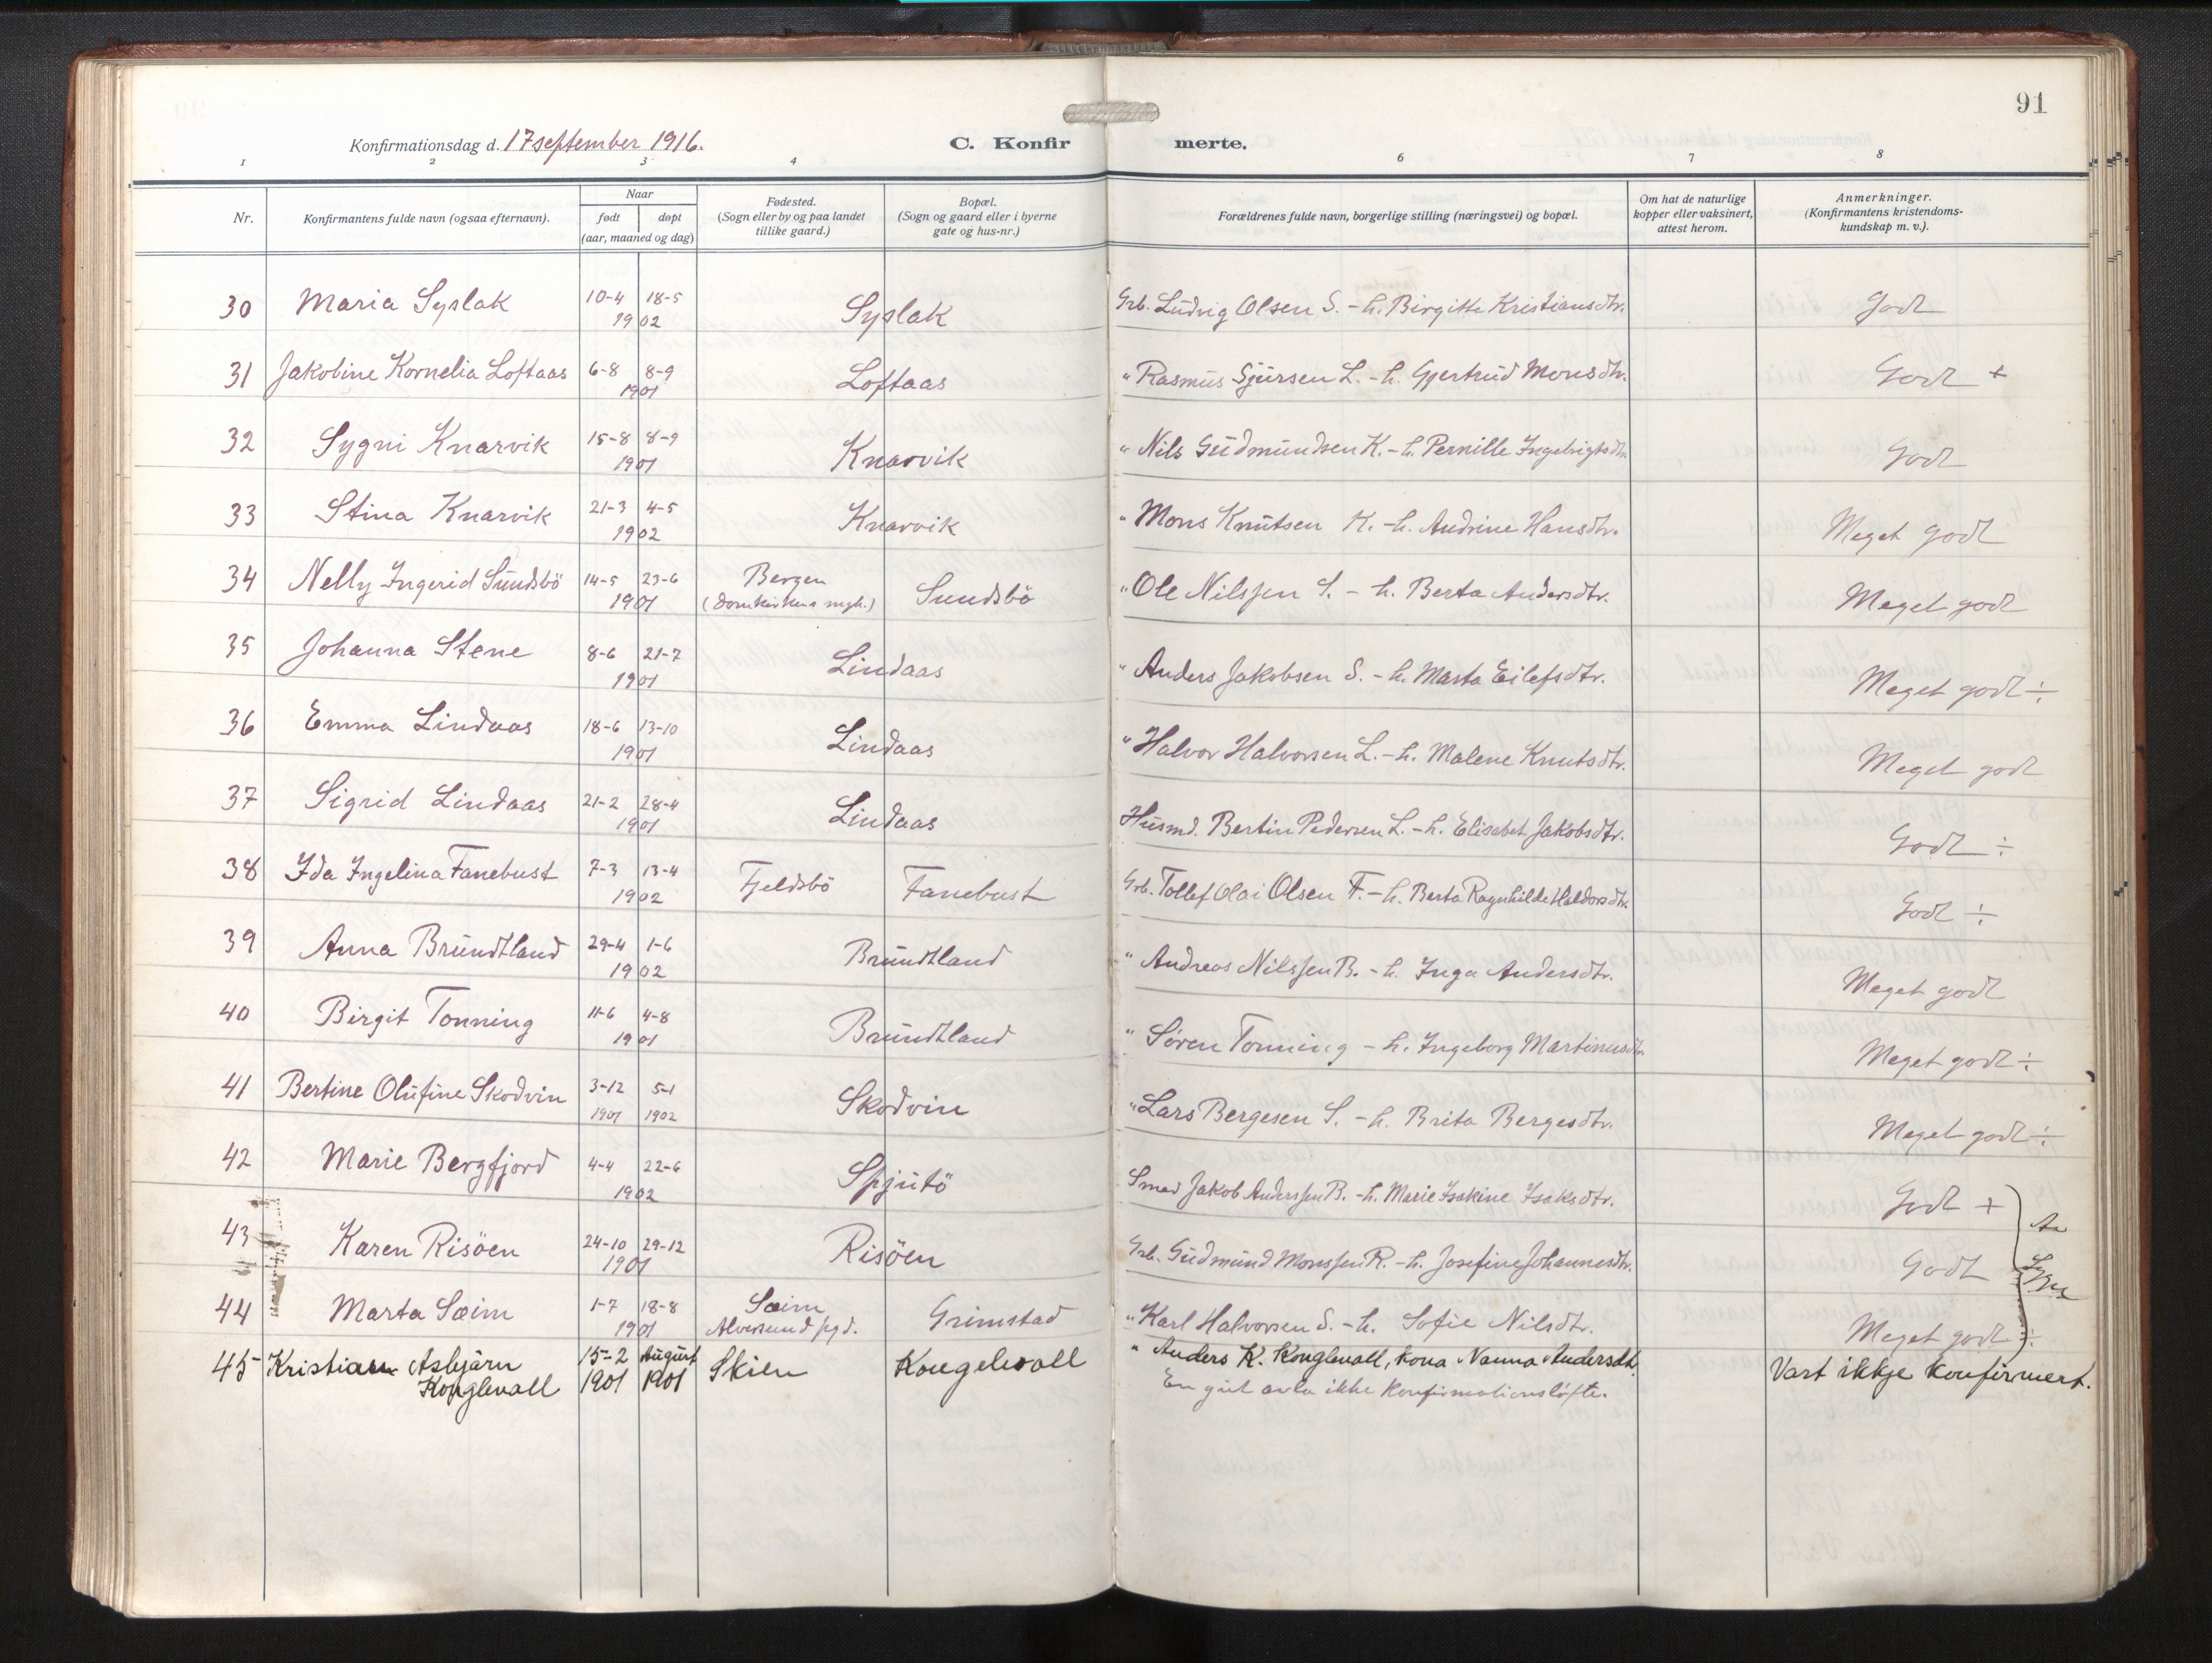 91
Konfirmationsdag d. 17 september 1916.
C. Konfirmerte.
1 2 3 4 6 7 8
Nr.
Konfirmantens fulde navn (ogsaa efternavn).
Naar
født døpt
(aar, maaned og dag)
Fødested.
(Sogn eller by og paa landet
tillike gaard.)
Bopæl.
(Sogn og gaard eller i byerne
gate og hus-nr.)
Forældrenes fulde navn, borgerlige stilling (næringsvei) og bopæl.
Om hat de naturlige
kopper eller vaksinert,
attest herom.
Anmerkninger.
(Konfirmantens kristendoms-
kundskap m. v.).
30 Maria Syslak 10-4 18-5 1902 Syslak Grb. Ludvig Olsen S. - h. Birgitte Kristiansdtr. Godt
31 Jakobine Kornelia Loftaas 6-8 8-9 1901 Loftaas " Rasmus Sjursen L. - h. Gjertrud Monsdtr. Godt +
32 Sygni Knarvik 15-8 8-9 1901 Knarvik " Nils Gudmundsen K. - h. Pernille Ingebrigtsdtr. Godt
33 Stina Knarvik 21-3 4-5 1902 Knarvik " Mons Knutsen K. - h. Andrine Hansdtr. Meget godt
34 Nelly Ingerid Sundsbö 14-5 23-6 1901 Bergen (Domkirkens mgh.) Sundsbö " Ole Nilssen S. - h. Berta Andersdtr. Meget godt
35 Johanna Stene 8-6 21-7 1901 Lindaas " Anders Jakobsen S. - h. Marta Eilefsdtr. Meget godt ÷
36 Emma Lindaas 18-6 13-10 1901 Lindaas " Halvor Halvorsen L. - h. Malene Knutsdtr. Meget godt
37 Sigrid Lindaas 21-2 28-4 1901 Lindaas Husmd. Bertin Pedersen L. - h. Elisabet Jakobsdtr. Godt ÷
38 Ida Ingelina Fanebust 7-3 13-4 1902 Fjeldsbö Fanebust Grb. Tollef Olai Olsen F. - h. Berta Ragnhilde Haldorsdtr. Godt ÷
39 Anna Brundtland 29-4 1-6 1902 Brundtland " Andreas Nilssen B. - h. Inga Andersdtr. Meget godt
40 Birgit Tonning 11-6 4-8 1901 Brundtland " Søren Tonning - h. Ingeborg Martinusdtr. Meget godt ÷
41 Bertine Olufine Skodvin 3-12 5-1 1901 1902 Skodvin " Lars Bergesen S. - h. Brita Bergesdtr. Meget godt ÷
42 Marie Bergfjord 4-4 22-6 1902 Spjutö Smed Jakob Anderssen B. - h. Marie Isakine Isaksdtr. Godt +
43 Karen Risöen 24-10 29-12 1901 Risöen Grb. Gudmund Monssen R. - h. Josefine Johannesdtr. Godt
44 Marta Sæim 1-7 18-8 1901 Sæim Alversund pgd. Grimstad " Karl Halvorsen S. - h. Sofie Nilsdtr. Meget godt ÷
45 Kristian Asbjørn 15-2 August Skien Konglevoll " Anders K. Konglevall, kona Nanna Andersdt. Vart ikkje konfirmert.
Konglevall 1901 1901 En gut avla ikke konfirmationsløfte.